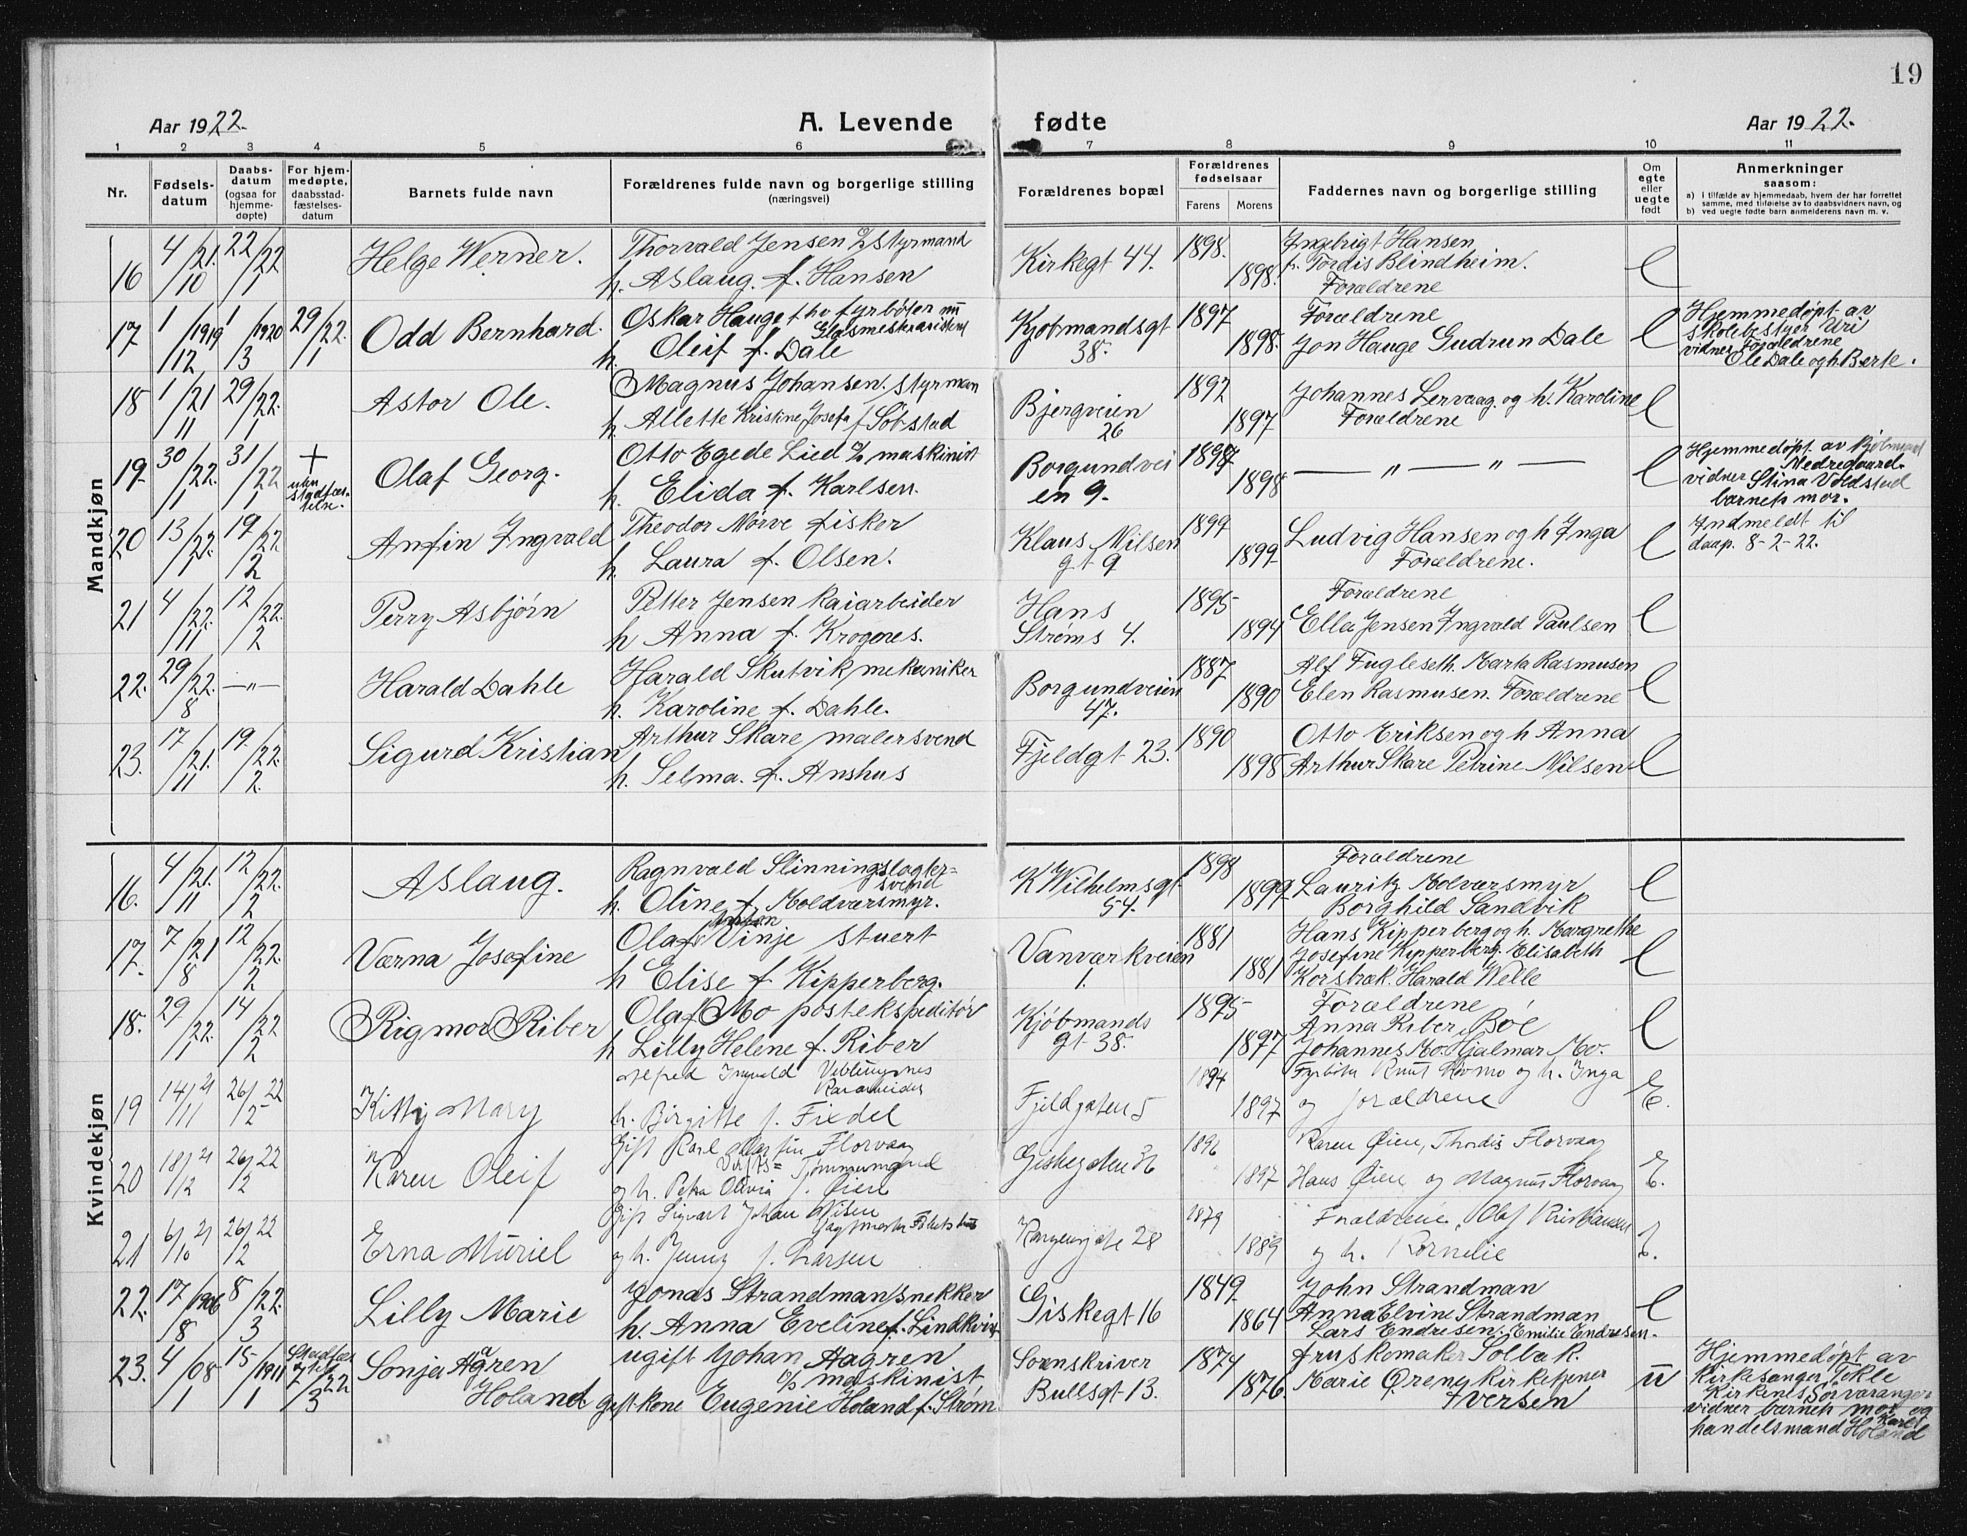 19
Aar 1922.
A. Levende
fødte
Aar 1922.
1 2 3 4 5 6 7 8 9 10 11
Nr.
Fødsels-
datum
Daabs-
datum
(ogsaa for
hjemme-
døpte)
For hjem-
medøpte,
daabsstad-
fæstelses-
datum
Barnets fulde navn
Forældrenes fulde navn og borgerlige stilling
(næringsvei)
Forældrenes bopæl
Forældrenes
fødselsaar
Farens Morens
Faddernes navn og borgerlige stilling
Om
egte
eller
uegte
født
Anmerkninger
saasom:
a) i tilfælde av hjemmedaab, hvem der har forrettet
samme, med tilføielse av to daabsvidners navn, og
b) ved uegte fødte barn anmelderens navn m. v.
Mandkjøn
16 4/10 21. 22/1 22 Helge Werner. Thorvald Jensen styrmand
h. Aslaug f. Hansen
Kirkegt 44. 1898. 1898.
Ingebrigt Hansen
fr. Tordis Blindheim.
Forældrene
17 1/12 1919 1/3 1920 29/1 22. Odd Bernhard. Oskar Hauge fhv fyrbøter nu
h. Oleif f. Dale
Kjøbmandsgt
38. 1897 1898.
Forældrene
Jon Hauge Gudrun Dale
Hjemmedøpt av
skolebestyer Uri
vidner Forældrene
Ole Dale og h Berte.
18 1/11 21 29/1 22. Astor Ole. Magnus Johansen. styrman
h. Allette Kristine Josefa f Søbstad
Bjergveien
26 1892 1897
Johannes Lervaag. og h. Karoline
Forældrene
19. 30/1 22. 31/1 22 +
uten
stadfæs-
telse.
Olaf Georg. Otto Egede Lied maskinist
h. Elida f. Karlsen.
Borgundvei
en 9. 1898
— „ — „ —
Hjemmedøpt av Kjøbmand
Medregaard.
vidner Stina Voldstad
barnets mor.
20 13/1 22. 19/2 22 Anfin Ingvald Theodor Nørve fisker
h. Laura f. Olsen.
Klaus Nilsen
gt 9 1899 1899
Ludvig Hansen og h Inga
Forældrene.
Indmeldt til
daap. 8-2-22.
21 4/11 22. 12/2 22. Perry Asbjørn Petter Jensen Kaiarbeider
h Anna f. Krognes.
Hans
Strøms 4. 1895 1894
Forældrene
Ella Jensen Ingvald Paulsen
22. 29/8 22. —„— Harald Dahle Harald Skutvik mekaniker
h. Karoline f. Dahle.
Borgundveien
47. 1887 1890
Alf Fugleseth. Marta Rasmusen
Elen Rasmusen. Forældrene
23. 17/11 21. 19./2 22. Sigurd Kristian Arthur Skare malersvend
h. Selma. f. Anshus
Fjeldgt 23. 1890 1898
Otto Eriksen og h Anna
Arthur Skare Petrine Nilsen
Kvindekjøn
16. 4/11 21. 12/2 22. Aslaug. Ragnvald Slinning slagter-
svend
h. Oline f Moldværsmyr.
K Wilhelmsgt
54. 1898 1899
Forældrene
Lauritz Molværsmyr
Borghild Sandvik
17. 7/8 21 12/2 22. Værna Josefine Olaf Anton Vinje stuert
h Elise f Kipperberg.
Vanværkveien
1. 1881 1881
Hans Kipperberg og h. Margrethe
Josefine Kipperberg. Elisabeth
Korsbræk. Harald Welle
18. 29/1 22. 14/2 22 Rigmor Riber Olaf Mo postekspeditør
h Lilly Helene f. Riber
Kjøbmands
gt 38. 1895 1897
Forældrene
Anna Riber Bøe
Johannes Mo. Hjalmar Mo.
19 14/11 21 26/2 22 Kitty Mary Alfred Ingvald Veblungsnes
Kaiarbeider
h. Birgitte f. Fixdel
Fjeldgaten 5 1894 1897
Knut Nomo og h. Inga
og forældrene
20 18/12 21 26/2 22 Karen Oleif Gift Karl Florvaag
Tømmermand
og h. Petra Olivia f. Øien
Giskegaten 36 1896 1897
Karen Øien, Thordis Florvaag
Hans Øien og Magnus Florvaag
21 6/10 21 26/2 22 Erna Muriel Gift Sigvart Johan Nilsen
og h. Jenny f. Larsen
28 1879 1889
Forældrene, Olaf Kristiansen
og h. Kornelie
22. 17/8 1906 8/3 22. Lilly Marie Jonas Strandman snekker
h. Anna Eveline f. Lindkvist
Giskegt 16 1849 1864
John Strandman
Anna Elvine Strandman
Lars Endresen. Emilie Endresen.
23. 4/1 08 15/1 1911 Stadfæstet 7/3 22 Sonja Ågren
Holand
ugift Johan Aagren
maskinist
gift kone Eugenie Holand f. Strøm
Sorenskriver
Bullsgt 13. 1874 1876
fru skomaker Solbak.
Marie Ørene Kirketjener
Iversen
u
Hjemmedøpt av
Kirkesanger Tokle
Kirkenes Sørvaranger
vidner barnets mor og
handelsmand Karl Holand